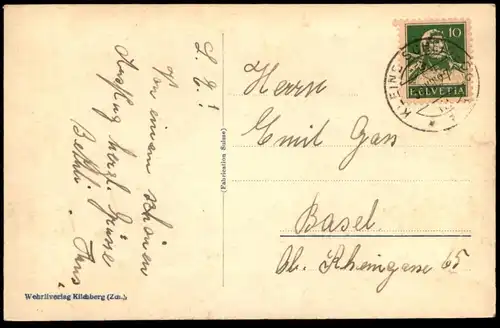 L. E.!
Von einem schönen
Ausflug herzl. Grüsse
Bethli. Hans
(Fabrication Suisse)
Wehrliverlag Kilchberg (Zch.)
10
HELVETIA
KLEINE
Herrn
Emil Gass
Basel
Ob. Rheingasse 65